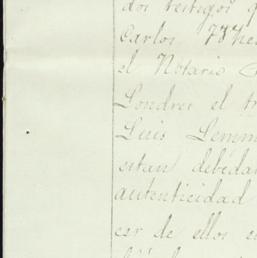 dos testigos q
Carlos
el Notario
Londres el tr
Luis Lemm
sitan debidam
autenticidad
cer de ellos en